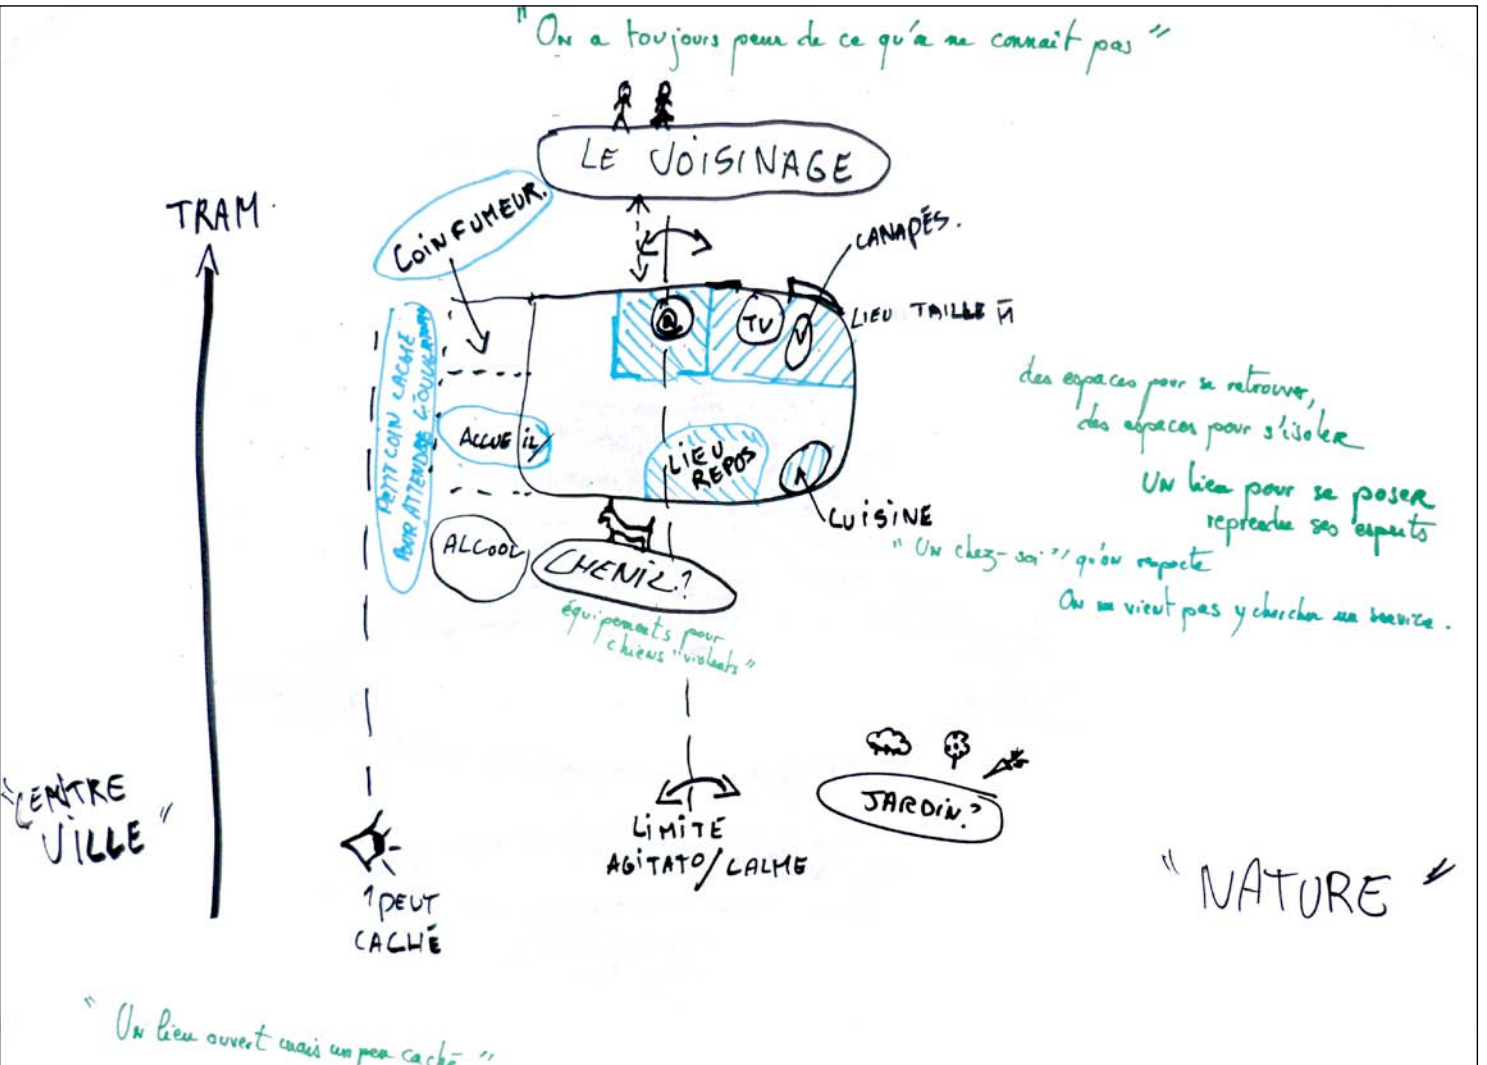 "On a toujours peur de ce qu'on ne connait pas"
LE VOISINAGE
TRAM.
COIN FUMEUR.
CANAPÉS.
@
TV
LIEU TAILLE M̄
PETIT COIN CACHÉ
POUR ATTENDRE L'OUVERTURE
ACCUEIL
LIEU
REPOS
CUISINE
ALCOOL
CHENIL?
équipements pour
chiens "violents"
des espaces pour se retrouver,
des espaces pour s'isoler
UN lieu pour se poser
reprendre ses esprits
"Un chez-soi" qu'on respecte
On ne vient pas y chercher un service.
"CENTRE
VILLE"
1 PEUT
CACHÉ
LIMITE
AGITATO/CALME
JARDIN?
"NATURE"
"Un lieu ouvert mais un peu caché"